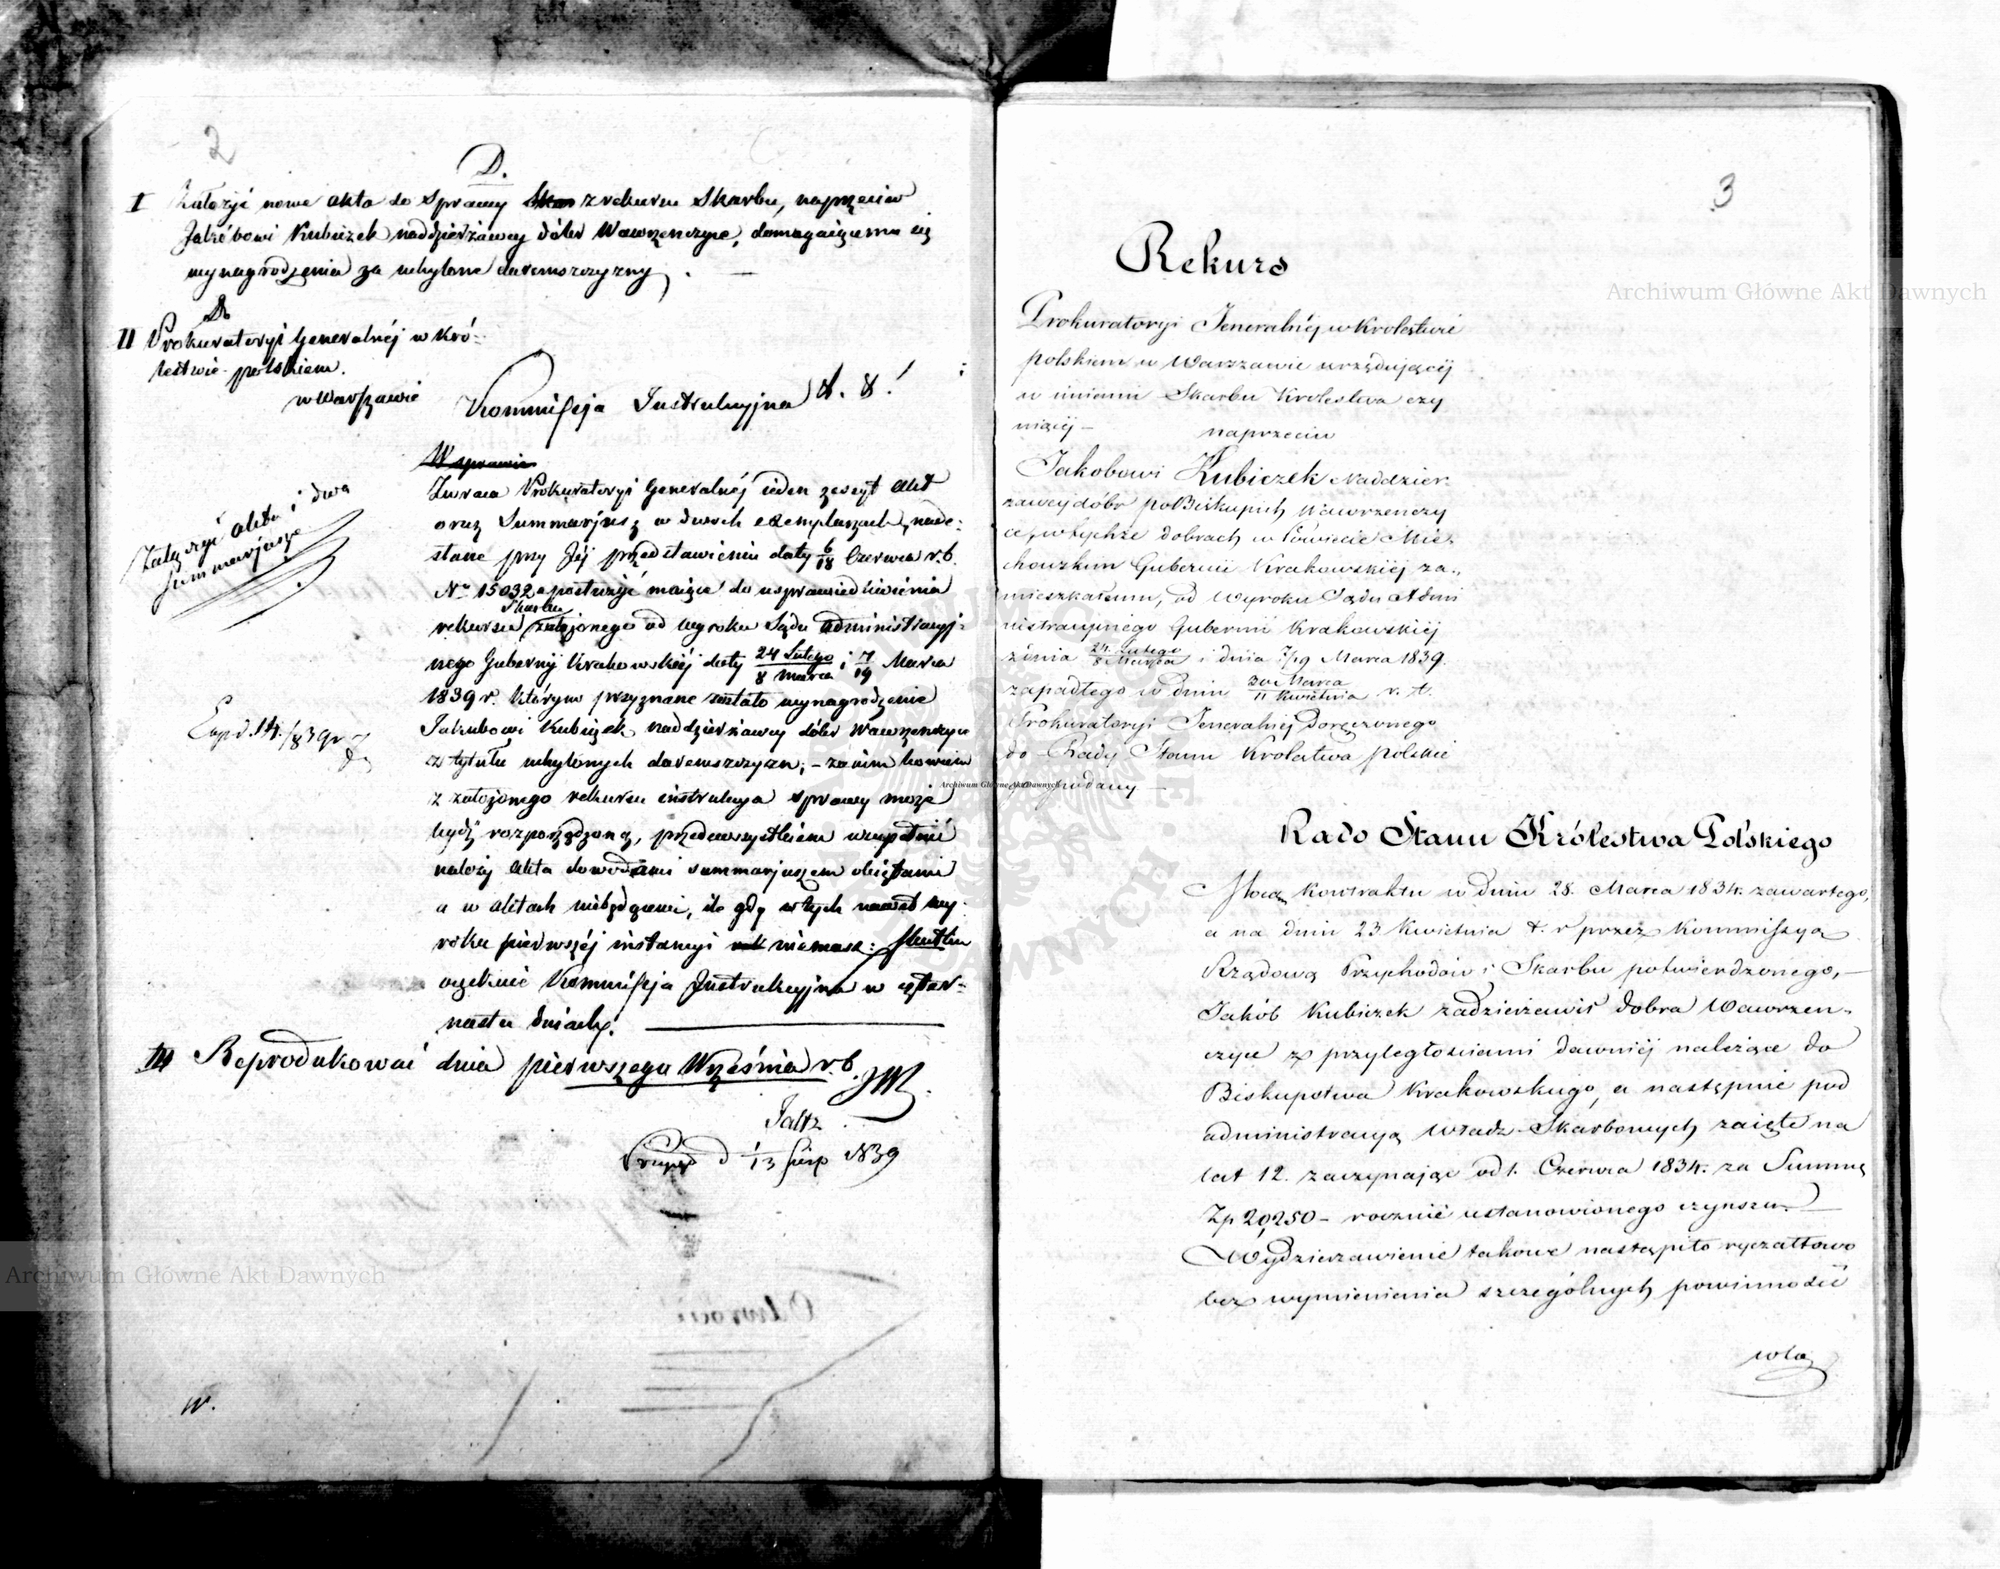 2
D.
I Założyć nowe akta do sprawy z rekursu Skarbu, naprzeciw
Jakóbowi Kubiczek naddzierżawcy dóbr Wawrzenczyce, domagaiącemu się
wynagrodzenia za uchylone daremszczyzny. —
Do
II Prokuratoryi Generalnéj w Kró-
lestwie polskiem.
w Warszawie
Kommissja Instrukcyjna R. S!
W sprawie
Zwraca Prokuratoryi Generalnéj ieden zeszyt akt
oraz Summarjusz w dwóch exemplarzach, nade-
słane przy Jéj przedstawieniu daty 6/18 Czerwca r.b.
Nr 15032 a posłużyć maiące do usprawiedliwienia
rekursu Skarbu założonego od wyroku Sądu administracyj-
nego Gubernij Krakowskiéj daty 24 Lutego/8 Marca i 7/19 Marca
1839 r. którym przyznane zostało wynagrodzenie
Jakubowi Kubiczek naddzierżawcy dóbr Wawrzenczyce
z tytułu uchylonych daremszczyzn; – zanim bowiem
z założonego rekursu instrukcya sprawy może
bydź rozporządzoną, przedewszystkiem uzupełnić
należy akta dowodami summarjuszem obiętami
a w aktach niebędącemi, ile gdy w tych nawet wy-
roku pierwszéj instancyi niemasz: Skutku
oczekuie Kommissja Instrukcyjna w czter-
nastu dniach.
Załączyć akta i dwa
Summarjusze
Exped. 14/8 39 r
III Reprodukować dnia pierwszego Września r.b.
d 1/13 sierp 1839
W.
3
Rekurs
Prokuratoryi Jeneralnéj w Krolestwie
polskiem w Warszawie urzędującéj
w imieniu Skarbu Krolestwa czy
niącéj –
naprzeciw
Jakobowi Kubiczek Naddzier-
żawcy dóbr poBiskupich Wawrzenczy
ce, w tychże dobrach w Powiecie Mie-
chowskim Gubernii Krakowskiéj za-
mieszkałemu, od Wyroku Sądu Admi
nistracyinego Gubernii Krakowskiéj
z dnia 24. Lutego/8 Marca i dnia 7/19 Marca 1839.
zapadłego w dniu 30 Marca/11 Kwietnia r. t.
Prokuratoryi Jeneralnéj doręczonego
do Rady Stanu Krolestwa polskie
go podany –
Rado Stanu Królestwa Polskiego
Mocą kontraktu w dniu 28. Marca 1834. zawartego,
a na dniu 23 Kwietnia t. r przez Kommissyą
Rządową Przychodów i Skarbu potwierdzonego, –
Jakób Kubiczek zadzierżawił dobra Wawrzen-
czyce z przyległościami dawniéj należące do
Biskupstwa Krakowskiego, a następnie pod
administracyą Władz Skarbowych zaięte na
lat 12. zaczynając od 1. Czerwca 1834. za Summę
Zp 20,250 – rocznie ustanowionego czynszu. –
Wydzierzawienie takowe nastąpiło ryczałtowo
bez wymienienia szczególnych powinności
wła
Archiwum Główne Akt Dawnych
Archiwum Główne Akt Dawnych
Archiwum Główne Akt Dawnych